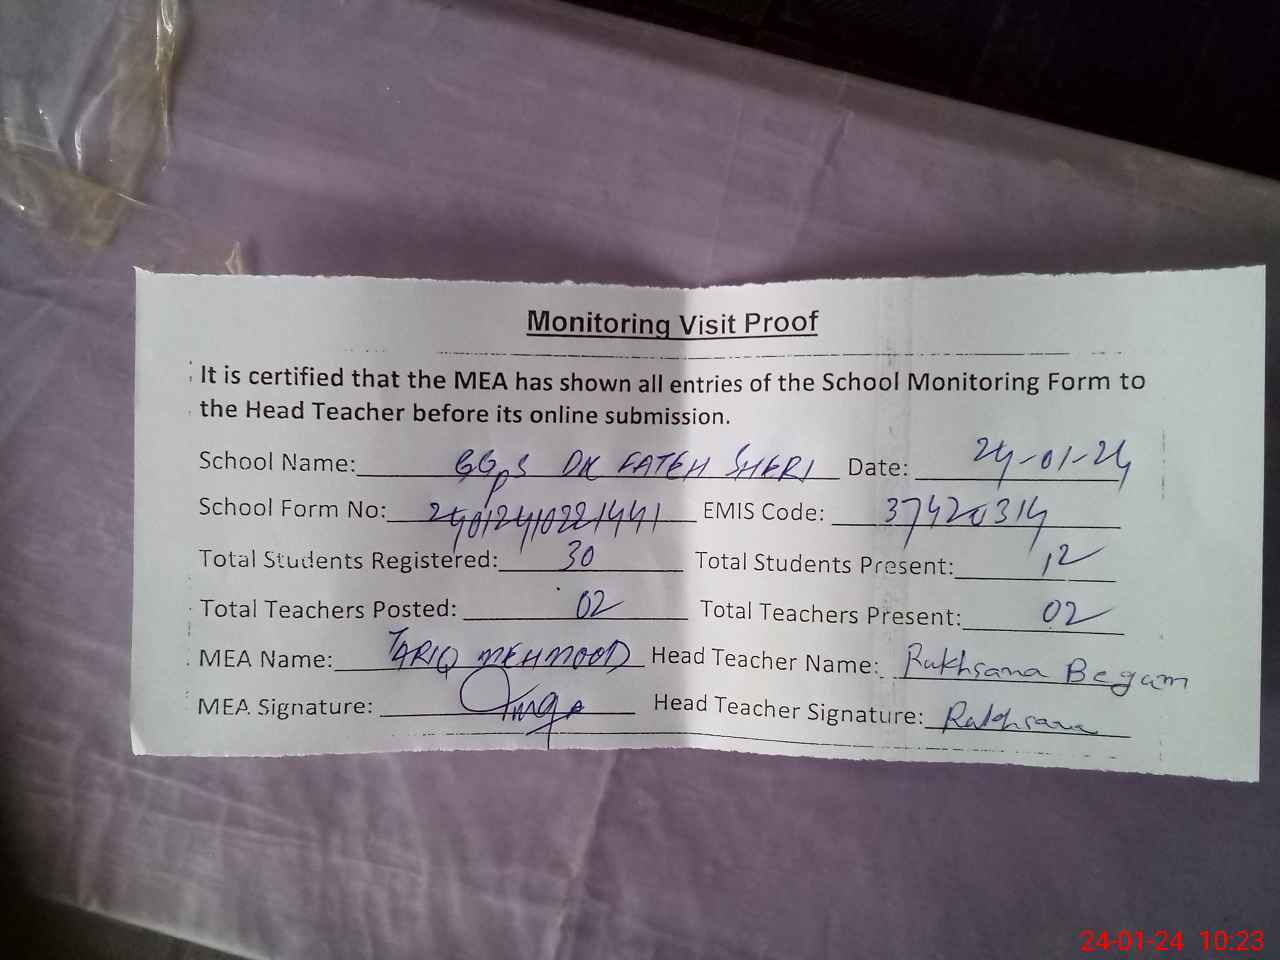 Monitoring Visit Proof
It is certified that the MEA has shown all entries of the School Monitoring Form to
the Head Teacher before its online submission.
School Name: GGPS DK FATEH SHERI Date: 24-01-24
School Form No: 24012410221441 EMIS Code: 37420314
Total Students Registered: 30 Total Students Present: 12
Total Teachers Posted: 02 Total Teachers Present: 02
MEA Name: TARIQ MEHMOOD Head Teacher Name: Rukhsana Begam
MEA Signature: Head Teacher Signature: Rukhsana
24-01-24 10:23